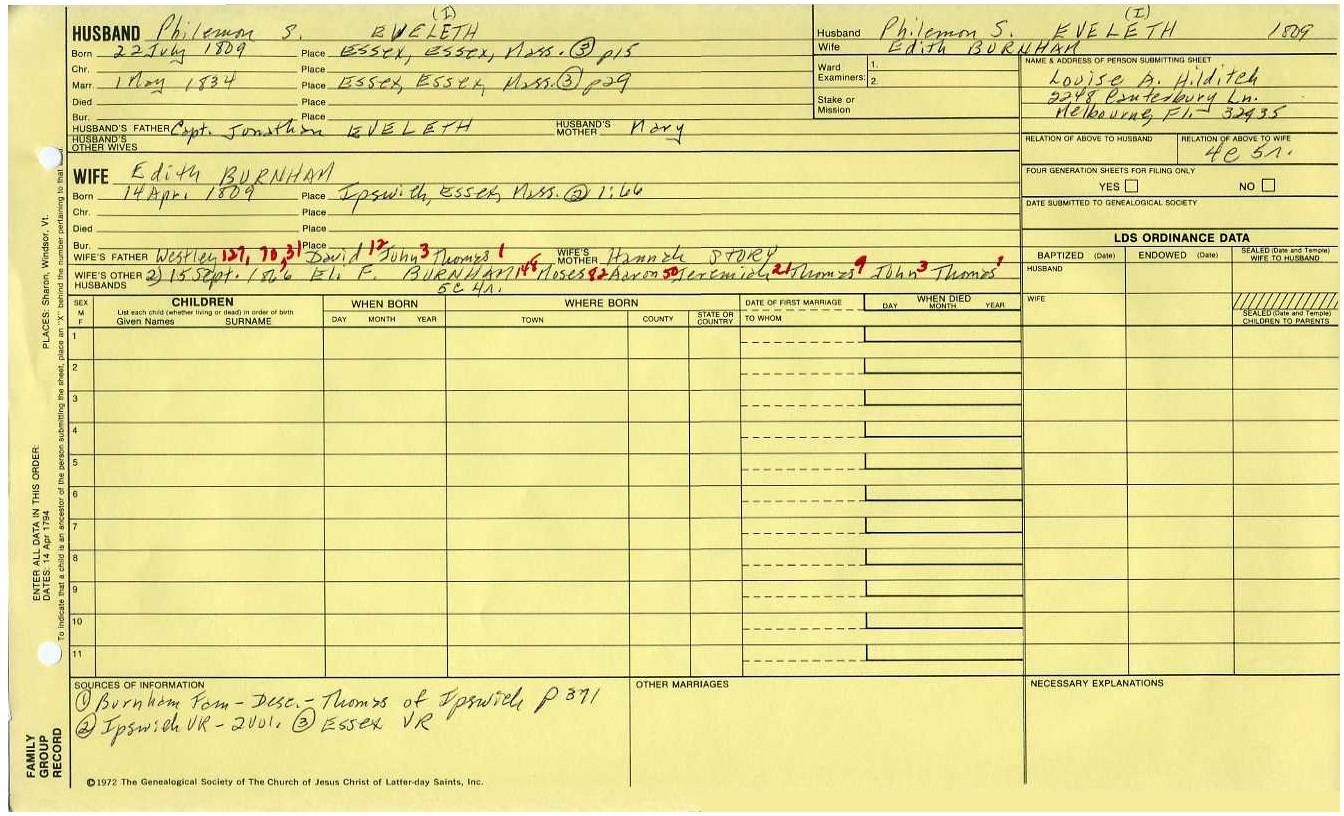 (I)
HUSBAND Philemon S. EVELETH
Born 22 July 1809 Place Essex, Essex, Mass. ③ p15
Chr. Place
Marr. 1 May 1834 Place Essex, Essex, Mass. ③ p29
Died Place
Bur. Place
HUSBAND'S FATHER Capt. Jonathan EVELETH HUSBAND'S MOTHER Mary
HUSBAND'S OTHER WIVES
(I)
Husband Philemon S. EVELETH 1809
Wife Edith BURNHAM
Ward Examiners: 1. 2.
Stake or Mission
NAME & ADDRESS OF PERSON SUBMITTING SHEET
Louise A. Hilditch
2248 Canterbury Ln.
Melbourne, Fl. 32935
RELATION OF ABOVE TO HUSBAND RELATION OF ABOVE TO WIFE
4c 5r.
FOUR GENERATION SHEETS FOR FILING ONLY
YES NO
DATE SUBMITTED TO GENEALOGICAL SOCIETY
WIFE Edith BURNHAM
Born 14 Apr. 1809 Place Ipswith, Essex, Mass. ② 1:66
Chr. Place
Died Place
Bur. Place
WIFE'S FATHER Westley 127, 70, 31 David 12 John 3 Thomas 1 WIFE'S MOTHER Hannah STORY
WIFE'S OTHER HUSBANDS 2) 15 Sept. Eli F. BURNHAM 148 Moses 82 Aaron 50 Jeremiah 21 Thomas 9 John 3 Thomas 1
5c 4r.
LDS ORDINANCE DATA
BAPTIZED (Date) ENDOWED (Date) SEALED (Date and Temple) WIFE TO HUSBAND
HUSBAND
WIFE
SEALED (Date and Temple) CHILDREN TO PARENTS
SEX M F CHILDREN WHEN BORN WHERE BORN DATE OF FIRST MARRIAGE WHEN DIED
List each child (whether living or dead) in order of birth
Given Names SURNAME DAY MONTH YEAR TOWN COUNTY STATE OR COUNTRY TO WHOM DAY MONTH YEAR
1
2
3
4
5
6
7
8
9
10
11
SOURCES OF INFORMATION
① Burnham Fam - Desc. - Thomas of Ipswich p 371
② Ipswich VR - 2 Vol. ③ Essex VR
OTHER MARRIAGES
NECESSARY EXPLANATIONS
©1972 The Genealogical Society of The Church of Jesus Christ of Latter-day Saints, Inc.
FAMILY GROUP RECORD
ENTER ALL DATA IN THIS ORDER:
DATES: 14 Apr 1794
PLACES: Sharon, Windsor, Vt.
To indicate that a child is an ancestor of the person submitting the sheet, place an "X" behind the number pertaining to that